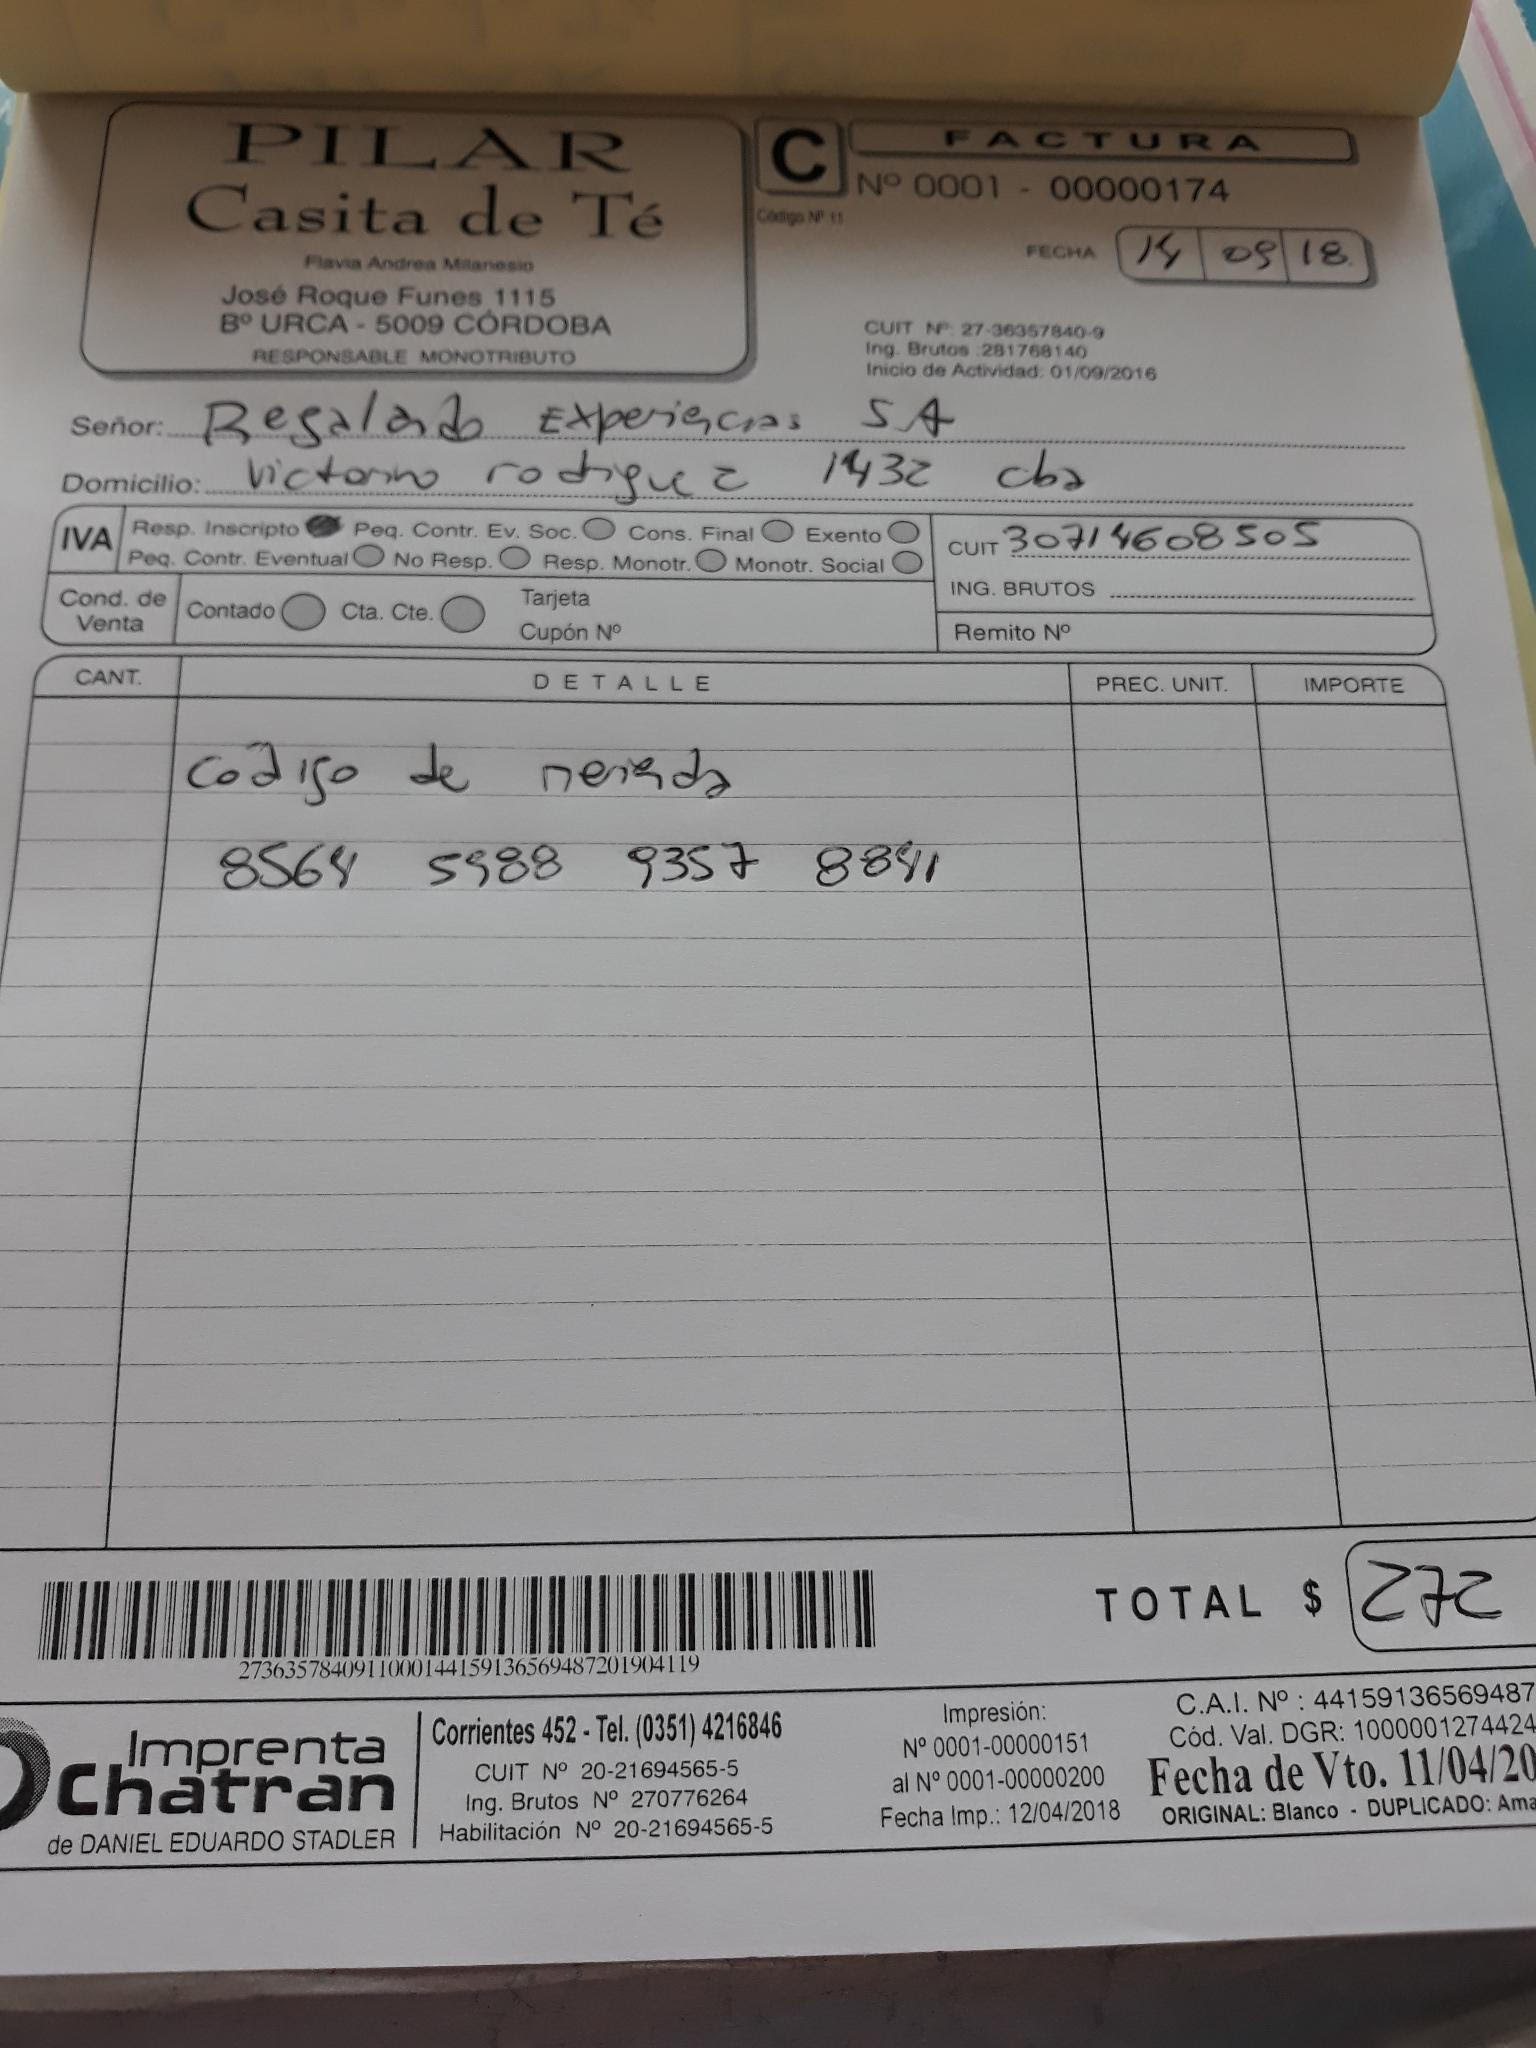 PILAR
Casita de Té
Flavia Andrea Milanesio
José Roque Funes 1115
Bº URCA - 5009 CÓRDOBA
RESPONSABLE MONOTRIBUTO
C
Código Nº 11
FACTURA
Nº 0001 - 00000174
FECHA 14 09 18
CUIT Nº: 27-36357840-9
Ing. Brutos :281768140
Inicio de Actividad: 01/09/2016
Señor: Regalado Experiencias SA
Domicilio: Victorino rodriguez 1432 cba
IVA Resp. Inscripto Peq. Contr. Ev. Soc. Cons. Final Exento
Peq. Contr. Eventual No Resp. Resp. Monotr. Monotr. Social
CUIT 30714608505
ING. BRUTOS
Cond. de Venta Contado Cta. Cte. Tarjeta
Cupón Nº
Remito Nº
CANT. DETALLE PREC. UNIT. IMPORTE
Codigo de merienda
8564 5988 9357 8841
TOTAL $ 272
27363578409110001441591365694872019​04119
Imprenta
Chatran
de DANIEL EDUARDO STADLER
Corrientes 452 - Tel. (0351) 4216846
CUIT Nº 20-21694565-5
Ing. Brutos Nº 270776264
Habilitación Nº 20-21694565-5
Impresión:
Nº 0001-00000151
al Nº 0001-00000200
Fecha Imp.: 12/04/2018
C.A.I. Nº : 44159136569487
Cód. Val. DGR: 1000001274424
Fecha de Vto. 11/04/20
ORIGINAL: Blanco - DUPLICADO: Ama